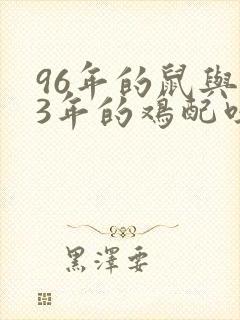 96年的鼠與
3年的鸡配
黑澤要